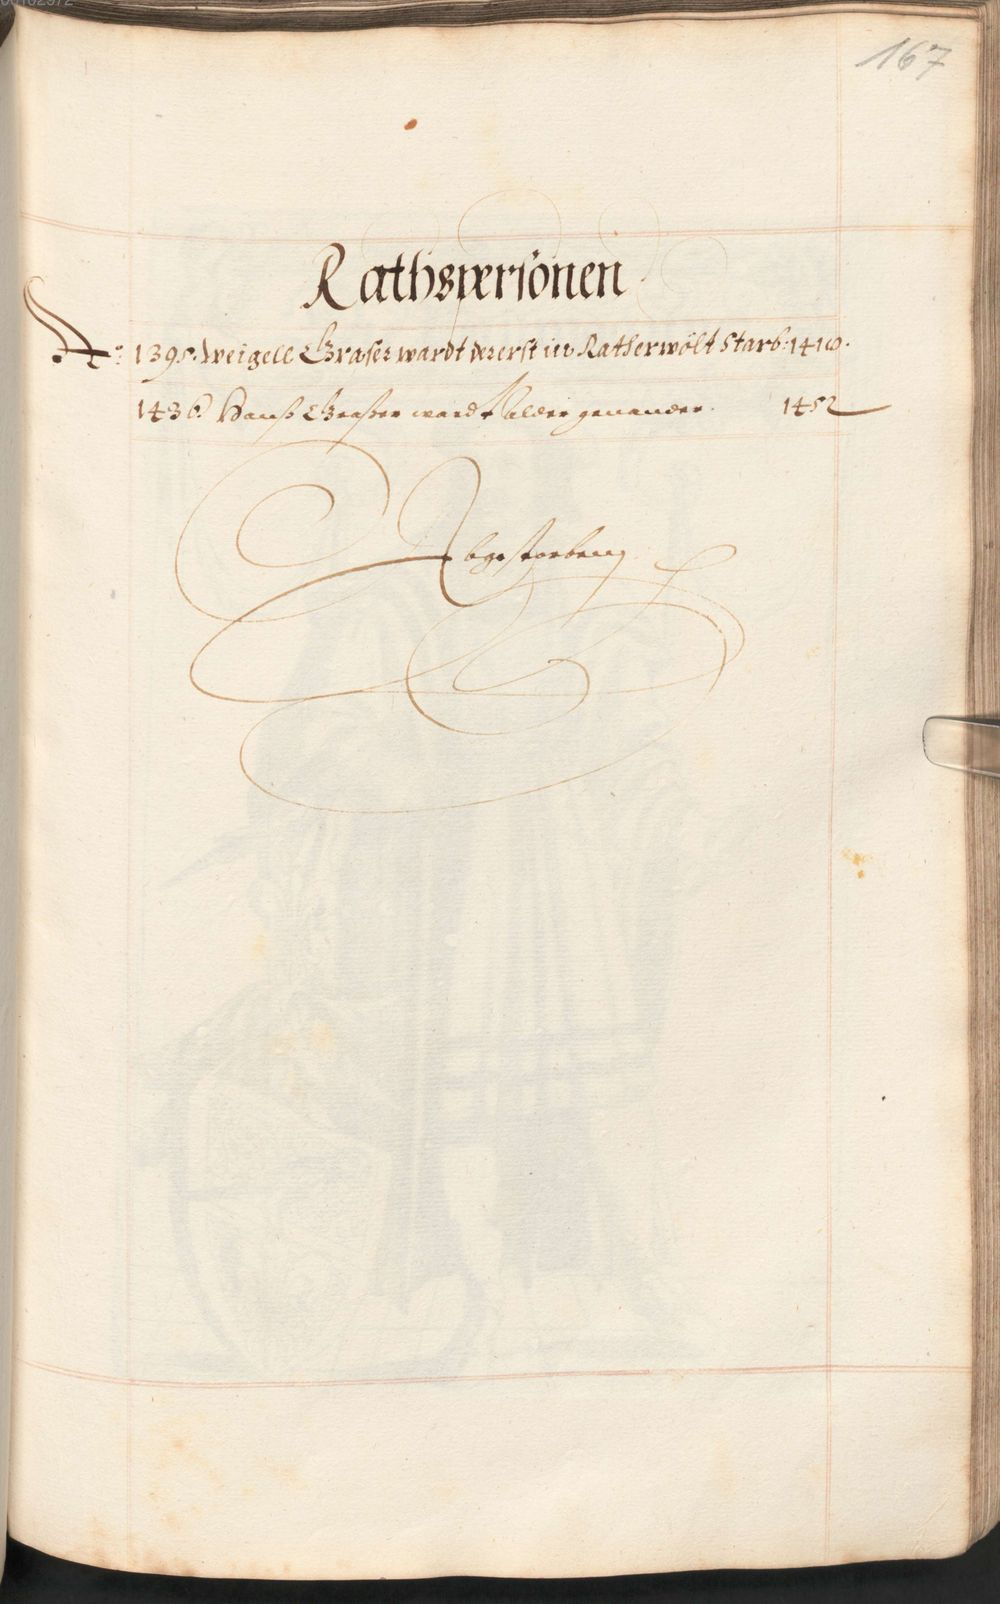 167
Rathspersonen
Aō: 1395. Weigell Graser wardt der erst in Rath erwölt Starb: 1410.
1436. Hanß Graßer wardt alder genander. 1452
Abgestorben